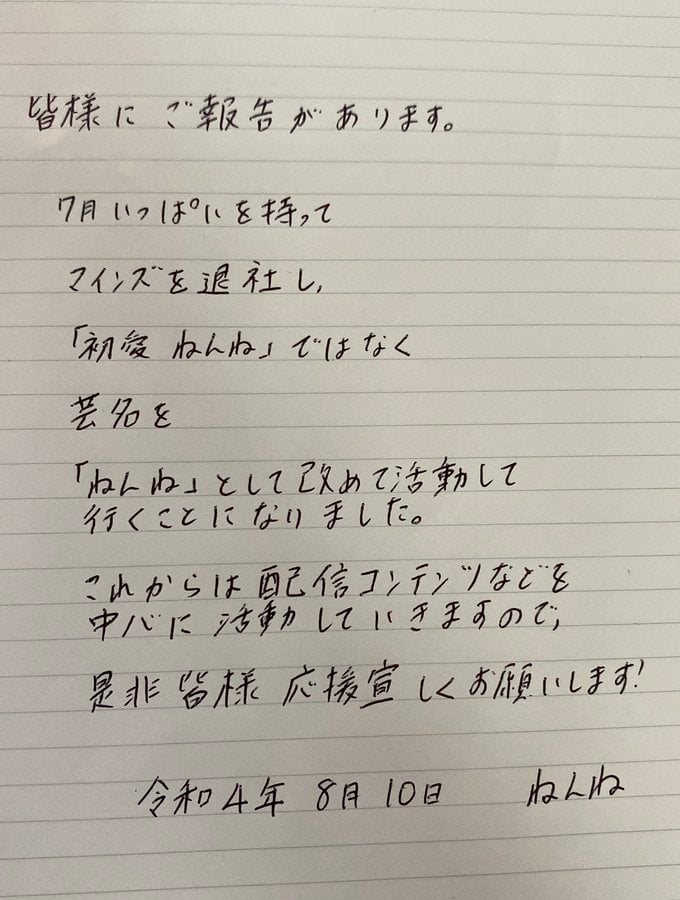 皆様にご報告があります。
7月いっぱいを持って
マインズを退社し,
「初愛 ねんね」ではなく
芸名を
「ねんね」として改めて活動して
行くことになりました。
これからは配信コンテンツなどを
中心に活動していきますので,
是非皆様 応援宜しくお願いします!
令和4年 8月10日 ねんね